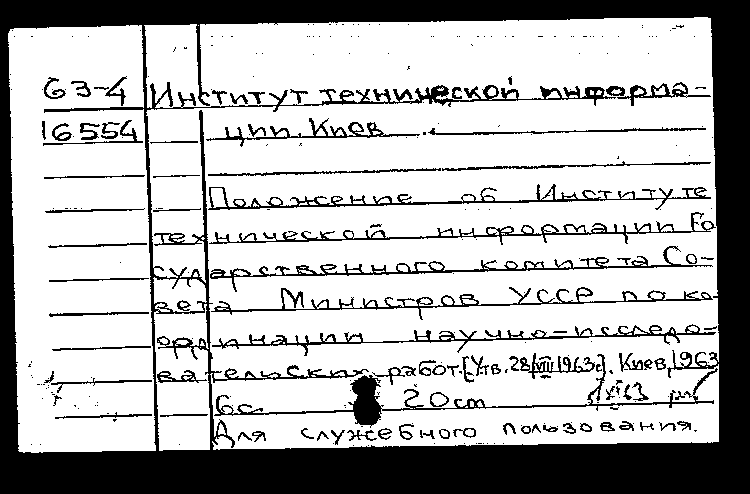 63-4 Институт технической информа-
16554 ции. Киев
Положение об Институте
технической информации Го
сударственного комитета Со-
вета Министров УССР по ко-
ординации научно-исследо-
вательских работ. [Утв. 28/VIII 1963г.]. Киев, 1963
6с. 20cm 1/XI 63
Для служебного пользования.